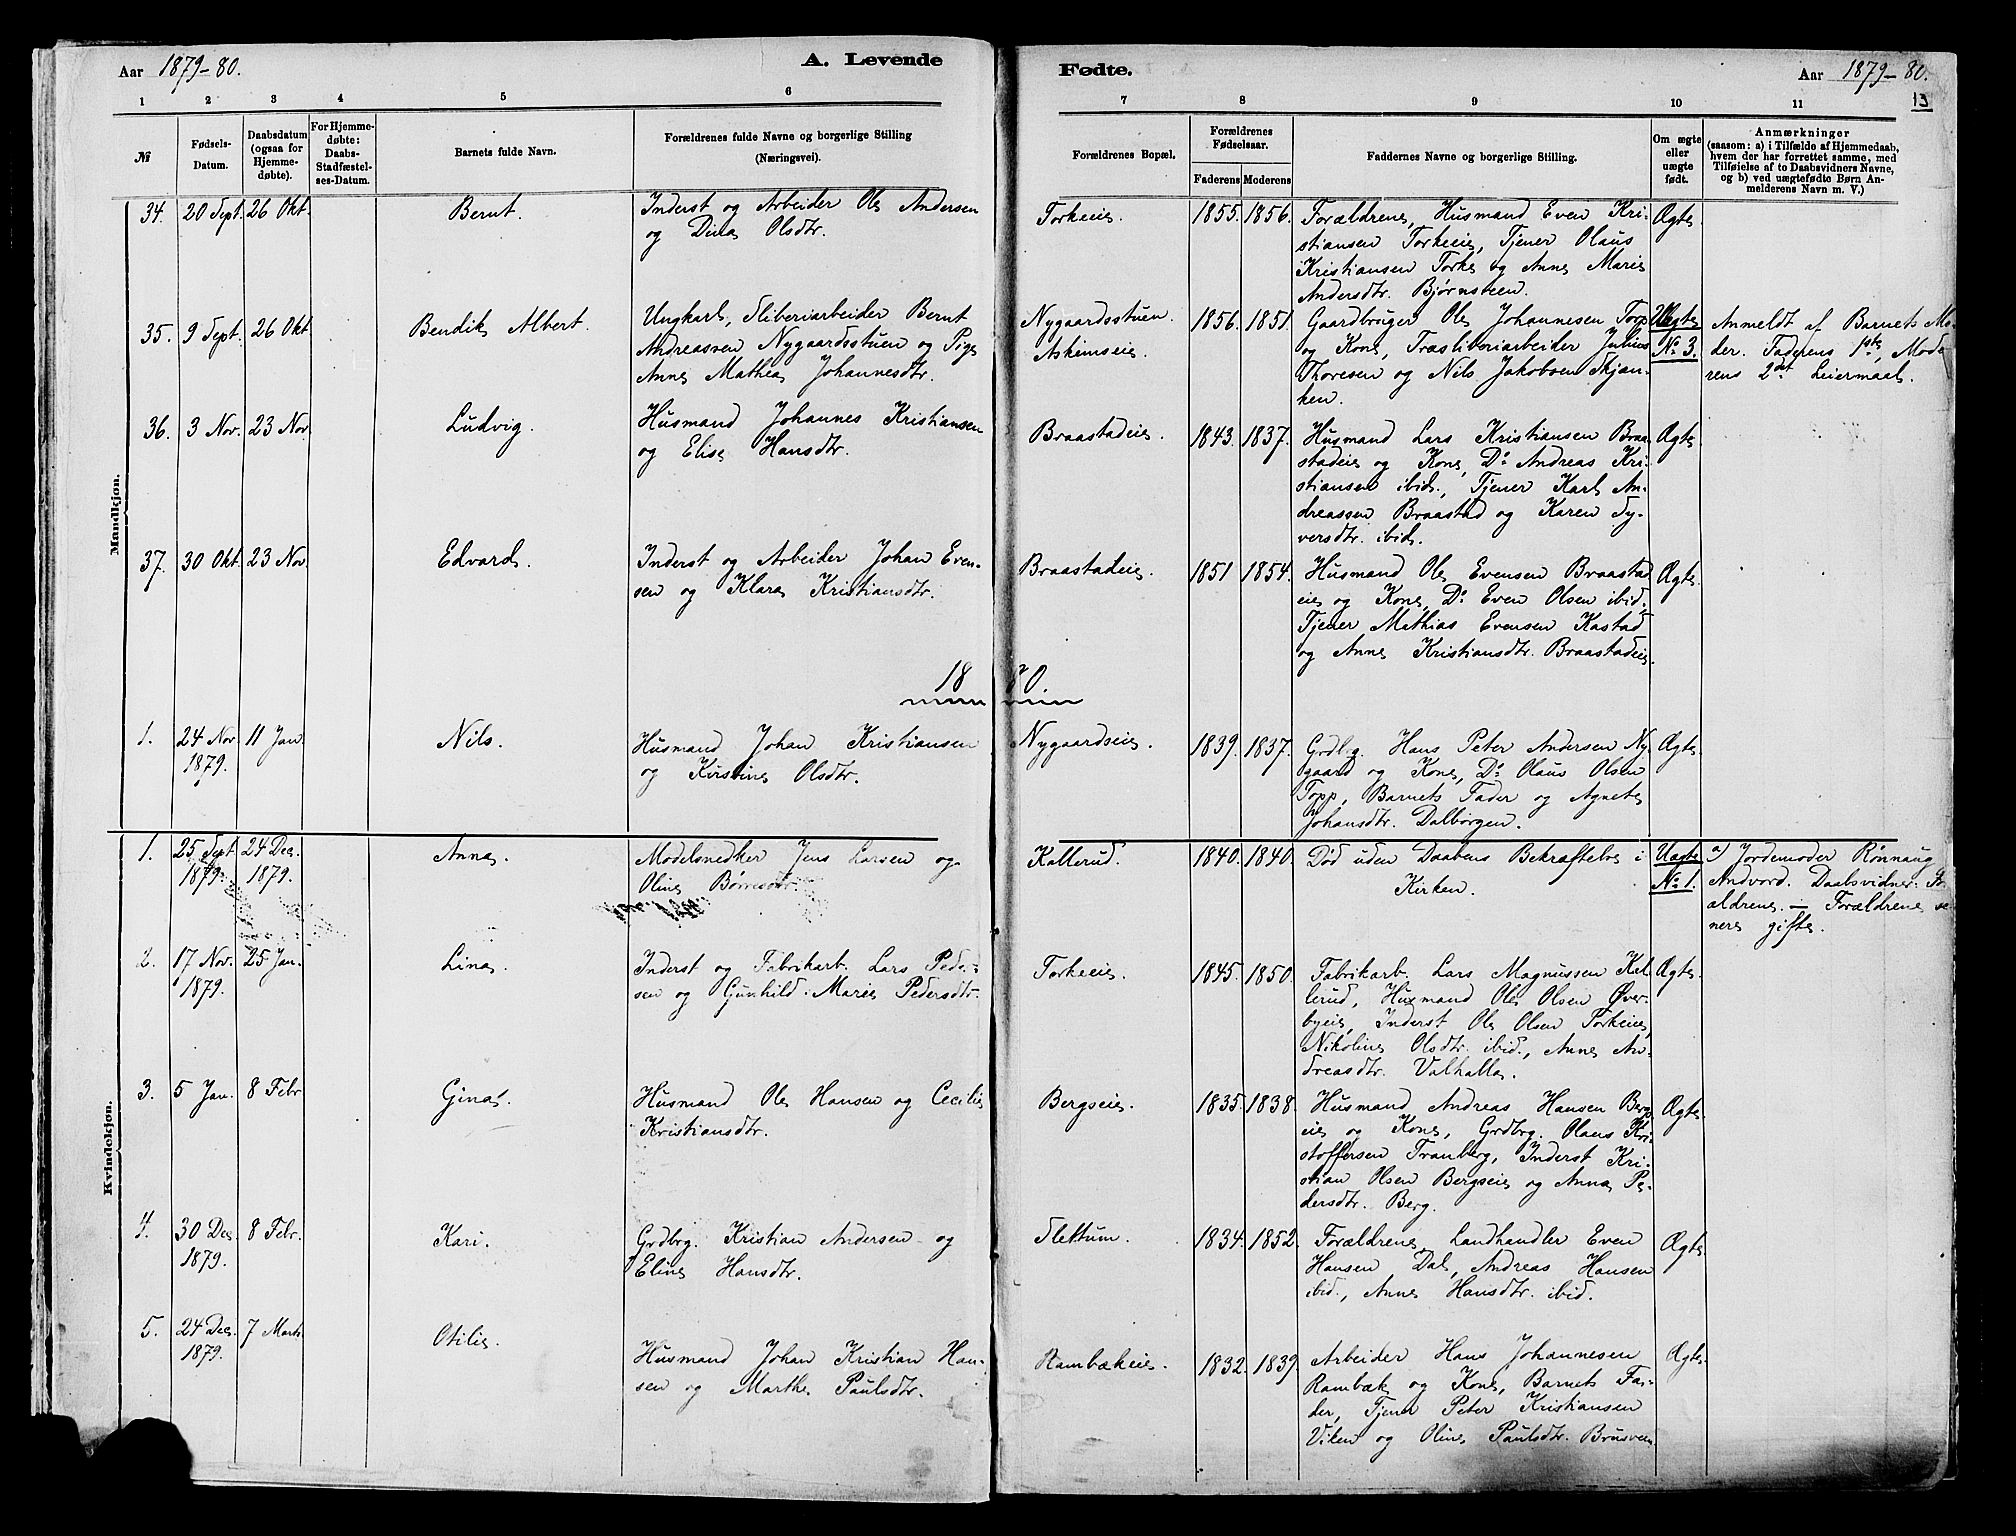 Aar 1879-80.
A. Levende
Fødte.
Aar 1879-80.
13
1 2 3 4 5 6 7 8 9 10 11
№
Fødsels-
Datum.
Daabsdatum
(ogsaa for
Hjemme-
døbte).
For Hjemme-
døbte:
Daabs-
Stadfæstel-
ses-Datum.
Barnets fulde Navn.
Forældrenes fulde Navne og borgerlige Stilling
(Næringsvei).
Forældrenes Bopæl.
Forældrenes
Fødselsaar.
Faderens Moderens
Faddernes Navne og borgerlige Stilling.
Om ægte
eller
uægte
født.
Anmærkninger
(saasom: a) i Tilfælde af Hjemmedaab,
hvem der har forrettet samme, med
Tilføielse af to Daabsvidners Navne,
og b) ved uægtefødte Børn An-
melderens Navn m. V.)
Mandkjøn.
34. 20 Sept. 26 Okt. Bernt. Inderst og Arbeider Ole Andersen
og Dina Olsdtr.
Torkeie. 1855. 1856. Forældrene, Husmand Even Kri-
stiansen Torkeeie, Tjener Olaus
Kristiansen Torke og Anne Marie
Andersdtr. Bjørnsteen.
Ægte
35. 9 Sept. 26 Okt Bendik Albert. Ungkarl, Sliberiarbeider Bernt
Andreassen Nygaardsstuen og Pige
Anne Mathea Johannesdtr.
Nygaardsstuen
Askimseie.
1856. 1851. Gaardbruger Ole Johannesen Topp
og Kone, Træsliberiarbeider Julius
Thoresen og Nils Jakobsen Skjan-
ken.
Uægte
No 3.
Anmeldt af Barnets Mo-
der. Faderens 1ste, Mode
rens 2det Leiermaal.
36. 3 Nov. 23 Nov Ludvig. Husmand Johannes Kristiansen
og Elise Hansdtr.
Braastadeie. 1843. 1837. Husmand Lars Kristiansen Braa-
stadeie og Kone, Do Andreas Kri-
stiansen ibid., Tjener Karl An-
dreassen Braastad og Karen Sy-
versdtr. ibid.
Ægte
37. 30 Okt. 23 Nov. Edvard. Inderst og Arbeider Johan Even-
sen og Klara Kristiansdtr.
Braastadeie. 1851 1854. Husmand Ole Evensen Braastad
eie og Kone, Do Even Olsen ibid.,
Tjener Mathias Evensen Kastad
og Anne Kristiansdtr. Braastadeie.
Ægte.
18 80.
1. 24 Nov
1879.
11 Jan. Nils. Husmand Johan Kristiansen
og Kirstine Olsdtr.
Nygaardseie. 1839. 1837. Grdbrg. Hans Peter Andersen Ny-
gaard og Kone, Do Olaus Olsen
Topp, Barnets Fader og Agnete
Johansdtr. Dalborgen.
Ægte.
Kvindekjøn.
1. 25 Sept
1879.
24 Dec.
1879.
Anna. Modelsnedker Jens Larsen og
Oline Børresdtr.
Kallerud. 1840. 1840. Død uden Daabens Bekræftelse i
Kirken.
Uægte
No 1.
a) Jordemoder Rønnaug
Andvord. Daabsvidner: For
ældrene. — Forældrene se-
nere gifte.
2. 17 Nov.
1879.
25 Jan. Lina. Inderst og Fabrikarb. Lars Peder-
sen og Gunhild Marie Pedersdtr.
Torkeeie. 1845. 1850. Fabrikarb. Lars Magnussen Kal
lerud, Husmand Ole Olsen Øver-
byeie, Inderst Ole Olsen Torkeeie,
Nikoline Olsdtr. ibid., Anne An-
dreasdtr. Valhalla.
Ægte.
3. 5 Jan. 8 Febr Gina. Husmand Ole Hansen og Cecilie
Kristiansdtr.
Bergseie. 1835. 1838. Husmand Andreas Hansen Bergs
eie og Kone, Grdbrg. Olaus Kri-
stoffersen Tranberg, Inderst Kri-
stian Olsen Bergseie og Anna Pe-
dersdtr. Berg.
Ægte
4. 30 Dec.
1879.
8 Febr. Kari. Grdbrg. Kristian Andersen og
Eline Hansdtr.
Slettum. 1834. 1852. Forældrene, Landhandler Even
Hansen Dal, Andreas Hansen
ibid., Anne Hansdtr. ibid.
Ægte.
5. 24 Dec.
1879.
7 Marts. Otilie. Husmand Johan Kristian Han-
sen og Marthe Paulsdtr.
Rambækeie. 1832. 1839. Arbeider Hans Johannesen
Rambæk og Kone, Barnets Fa-
der, Tjener Peter Kristiansen
Viken og Oline Paulsdtr. Brusveen
Ægte.